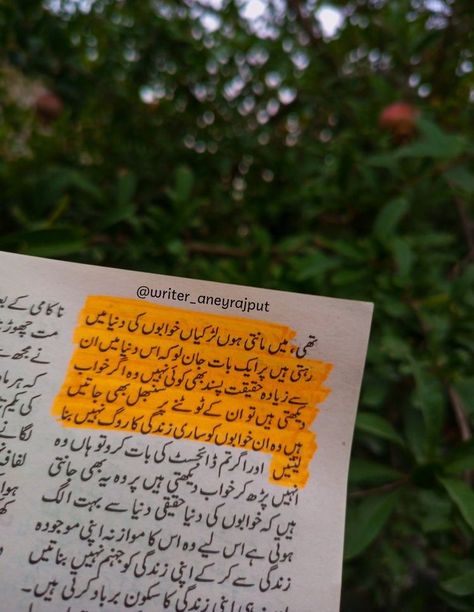 @writer_aneyrajput
تھی، میں مانتی ہوں لڑکیاں خوابوں کی دنیا میں
رہتی ہیں پر ایک بات جان لو کہ اس دنیا میں ان
سے زیادہ حقیقت پسند بھی کوئی نہیں وہ اگر خواب
دیکھتی ہیں تو ان کے ٹوٹنے پر سنبھل بھی جاتیں
ہیں وہ ان خوابوں کو ساری زندگی کا روگ نہیں بنا
لیتیں اور اگر تم ڈائجسٹ کی بات کرو تو ہاں وہ
انہیں پڑھ کر خواب دیکھتی ہیں پر وہ یہ بھی جانتی
ہیں کہ خوابوں کی دنیا حقیقی دنیا سے بہت الگ
ہوتی ہے اس لیے وہ اس کا موازنہ اپنی موجودہ
زندگی سے کر کے اپنی زندگی کو جہنم نہیں بناتیں
ہی اپنی زندگی کا سکون برباد کرتی ہیں۔
ناکامی کے
مت چھوڑ
نے مجھ
کہ ہر
کی
لگانے